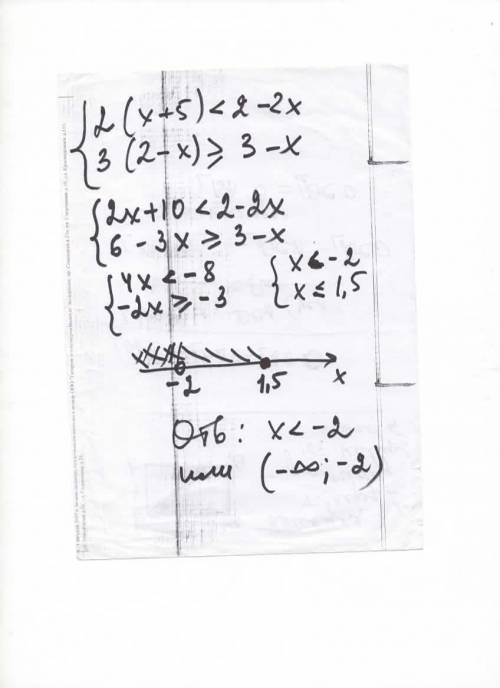 { 2(x+5) < 2-2x
3(2-x) ⩾ 3-x
{ 2x+10 < 2-2x
6-3x ⩾ 3-x
{ 4x < -8 { x < -2
-2x ⩾ -3 x ≤ 1,5
-2 1,5 x
Отв: x < -2
или (-∞; -2)